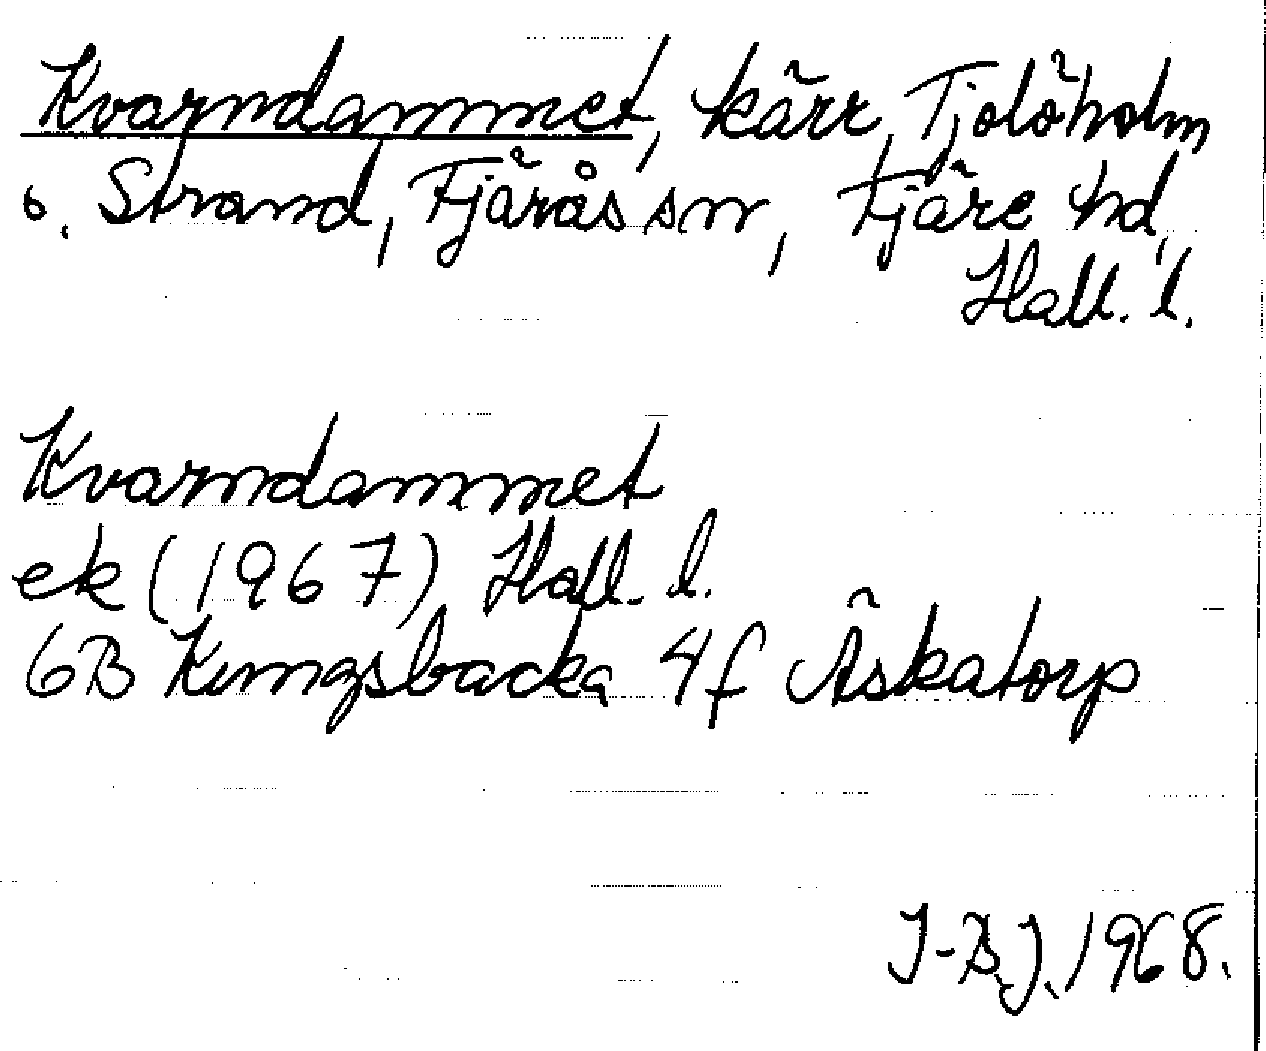 Kvarndammet, kärr, Tjolöholm
o. Strand, Fjärås sn, Fjäre hd,
Hall. l.
Kvarndammet
ek (1967) Hall. l.
6B Kungsbacka 4f Äskatorp
I-B.J. 1968.